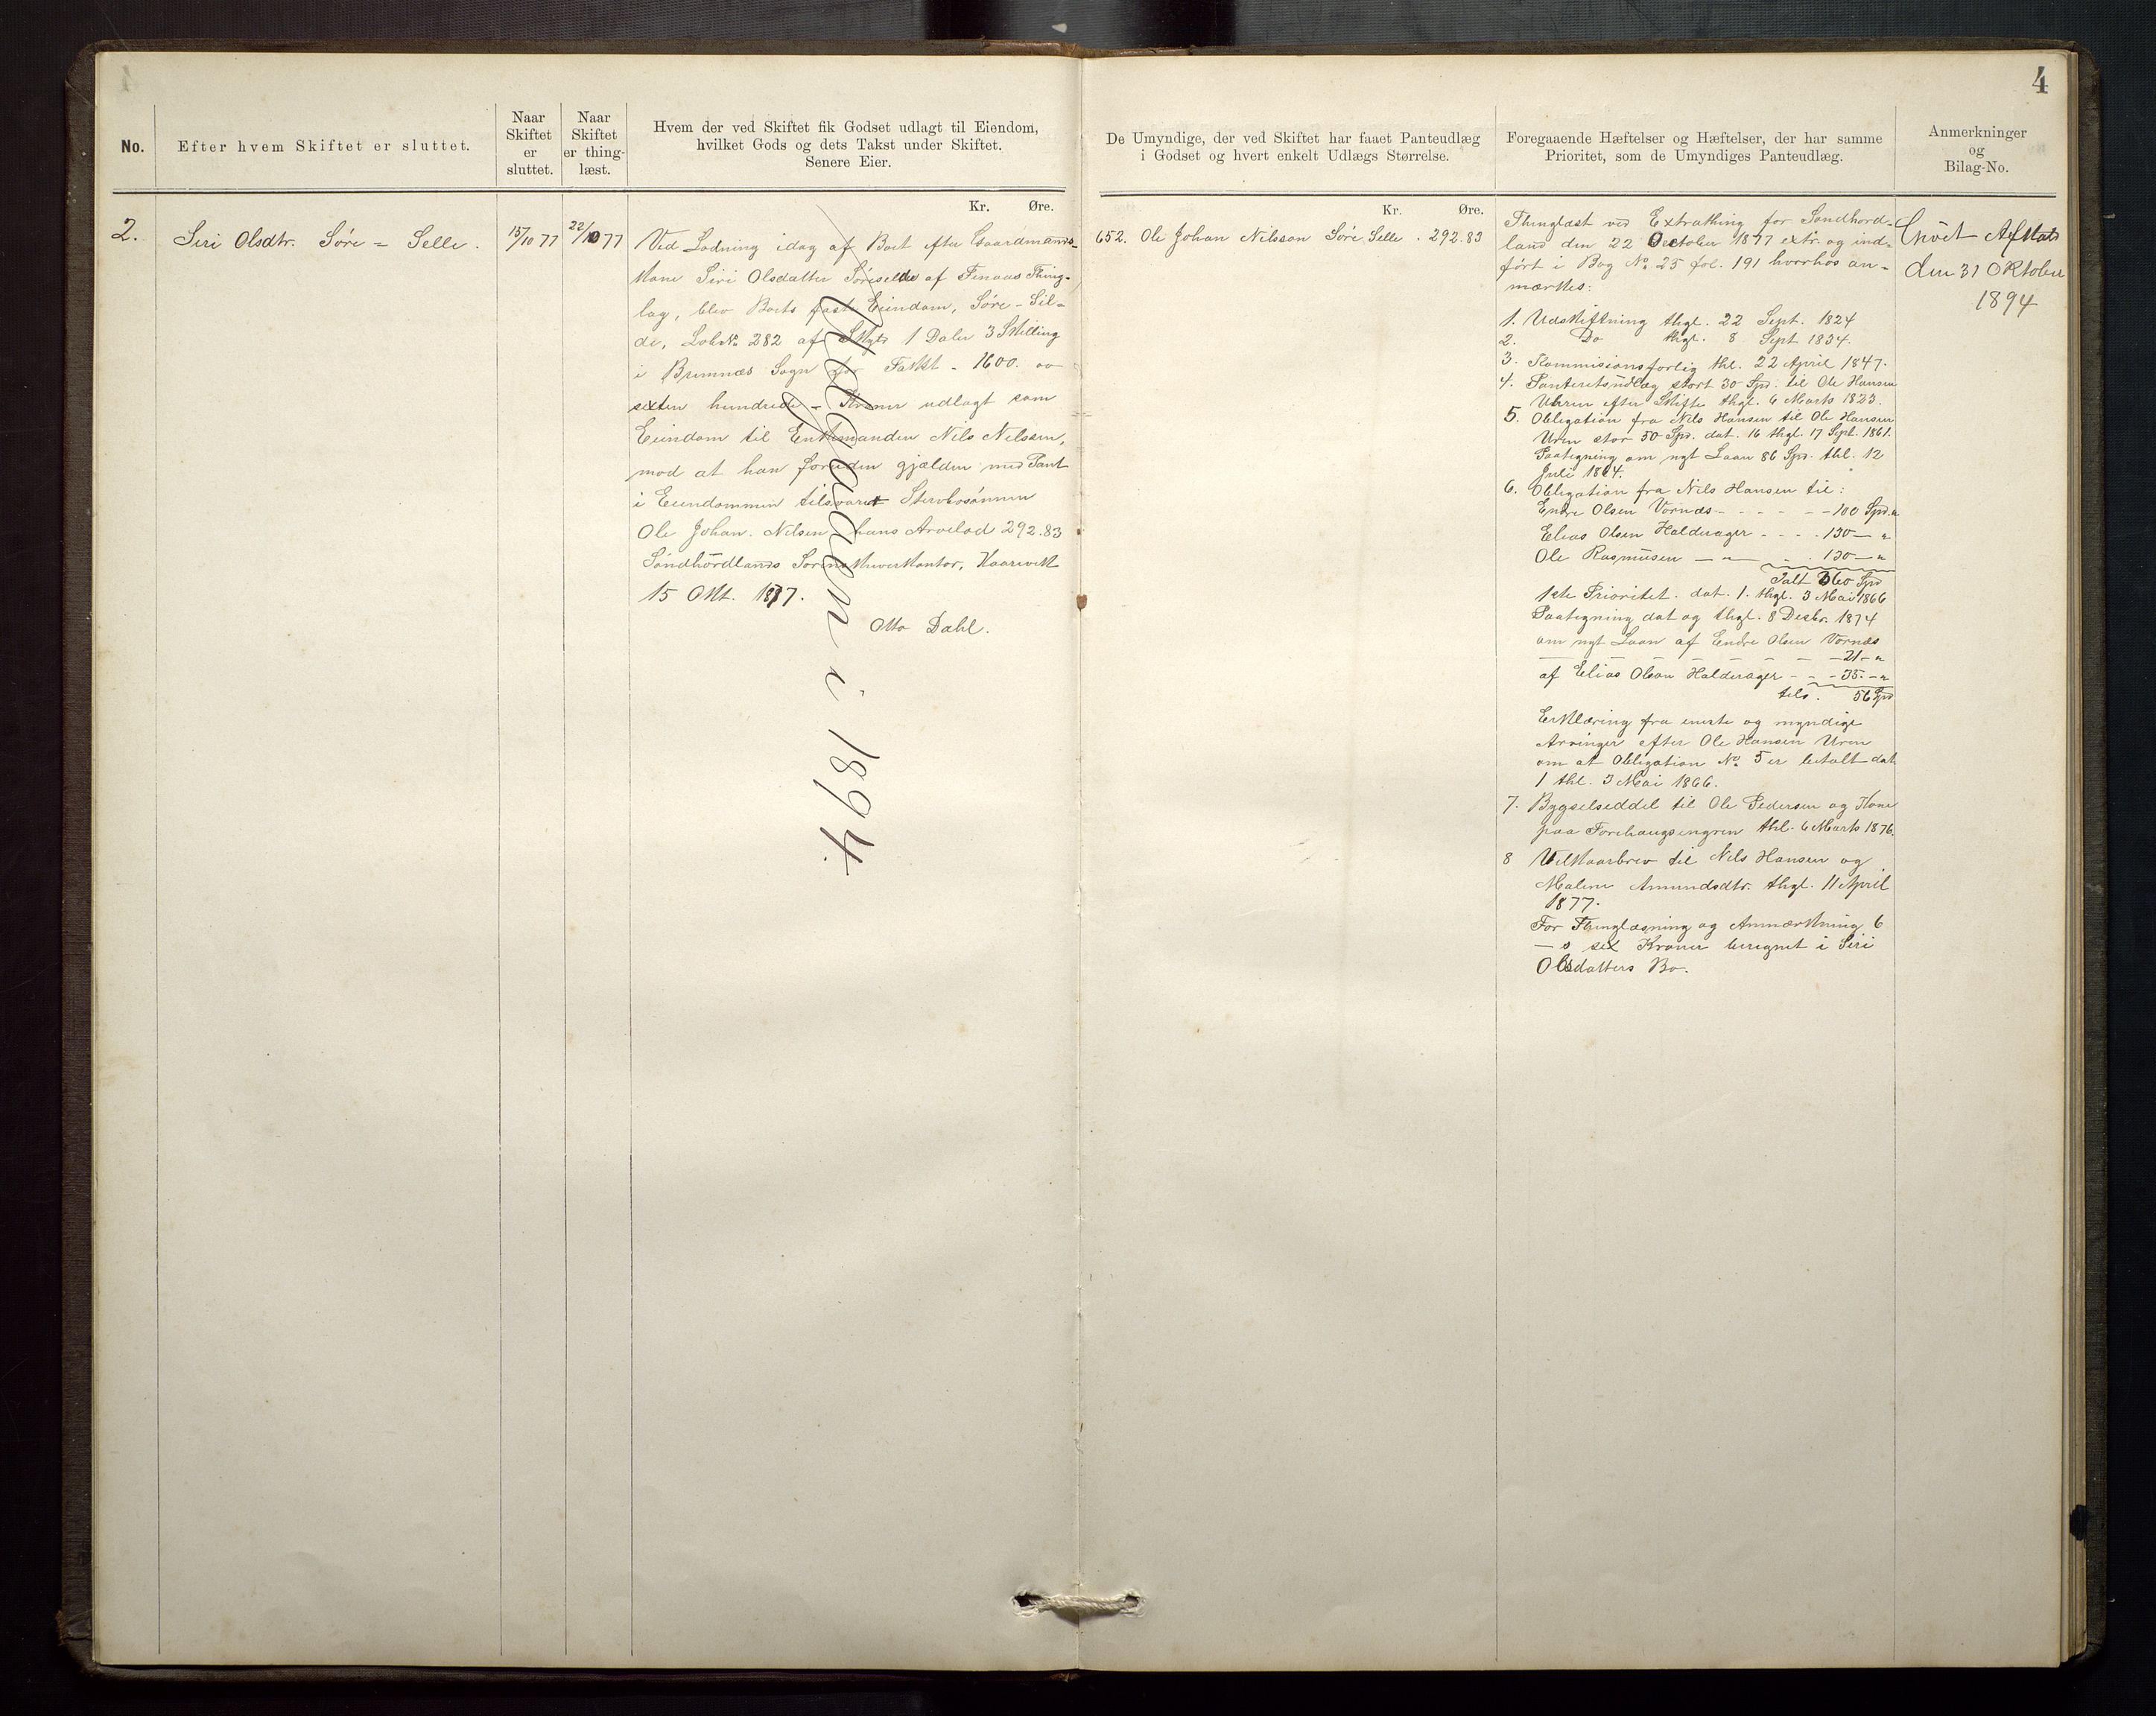 4
No.
Efter hvem Skiftet er sluttet.
Naar
Skiftet
er
sluttet.
Naar
Skiftet
er thing-
læst.
Hvem der ved Skiftet fik Godset udlagt til Eiendom,
hvilket Gods og dets Takst under Skiftet.
Senere Eier.
De Umyndige, der ved Skiftet har faaet Panteudlæg
i Godset og hvert enkelt Udlægs Størrelse.
Foregaaende Hæftelser og Hæftelser, der har samme
Prioritet, som de Umyndiges Panteudlæg.
Anmerkninger
og
Bilag-No.
Kr. Øre.
2.
Siri Olsdtr. Søre = Selle.
15/10 77
22/10 77
Ved Lodning idag af Boet efter Gaardmands-
kone Siri Olsdatter Søreselde af Finaas Thing-
lag, blev Boets faste Eiendom, Søre-Sel-
de, LobNo 282 af Skyld 1 Daler 3 Skilling
i Bremnæs Sogn for Takst - 1600. oo
sexten hundrede - Kroner udlagt som
Eiendom til Enkemanden Nils Nilsen,
mod at han foruden gjælden med Pant
i Eiendommen tilsvaret Stervbosønnen
Ole Johan. Nilsen hans Arvelod 292.83
Søndhordlands Sorenskriverkontor, Kaarevik
15 Okt. 1877.
Otto Dahl.
1894.
Kr. Øre.
652. Ole Johan Nilsson Søre Selle . 292.83
Thinglæst ved Extrathing for Søndhord-
land den 22 October 1877 extr. og ind-
ført i Bog No. 25 fol. 191 hvorhos an-
mærkes:
1. Udskiftning thgl. 22 Sept. 1824
2. Do thgl. 8 Sept 1834.
3. Kommissionsforlig thl. 22 April 1847.
4. Panteretsudlæg stort 30 Spd. til Ole Hansen
Uren efter Skifte thgl. 6 Marts 1823.
5. Obligation fra Nils Hansen til Ole Hansen
Uren stor 50 Spd. dat. 16 thgl. 17 Sept. 1861.
Paategning om nyt Laan 86 Spd. thl. 12
Juli 1864.
6. Obligation fra Nils Hansen til:
Endre Olsen Vornæs - - - - - - 100 Spd. "
Elias Olsen Halderager - - - . 130 — "
Ole Rasmusen — " — . . 130 — "
Ialt 360 Spd
1ste Prioritet. dat. 1. thgl. 3 Mai 1866
Paategning dat og thgl. 8 Desbr. 1874
om nyt Laan af Endre Olsen Vornæs
- - - - - - 21 - "
af Elias Olsen Halderager - - - 35. - "
tils. 56 Spd
Erklæring fra eneste og myndige
Arvinger efter Ole Hansen Uren
om at Obligation No. 5 er betalt dat
1 thl. 3 Mai 1866.
7. Bygselseddel til Ole Pedersen og Kone
paa thl. 6 Marts 1876.
8 Vilkaarbrev til Nils Hansen og
Malene Amundsdtr. thgl. 11 April
1877.
For Thinglæsning og Anmærkning 6
— s sex Kroner beregnet i Siri
Olsdatters Bo.
den 31 Oktober
1894